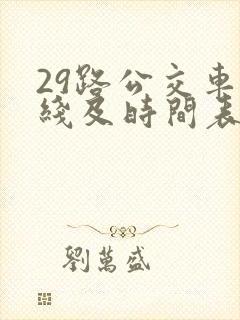 29路公交車
綫及時間表
劉萬盛